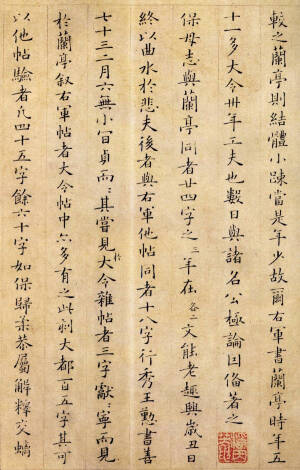 較之蘭亭則結體小踈當是年少故爾右軍書蘭亭時年五
十一多大令卅年工夫也數日與諸名公極論因俻著之
保母志與蘭亭同者廿四字之三年在各二文能老趣興歲丑日
終以曲水於悲夫後者與右軍他帖同者十八字行秀王勲書善
七十三二月六無小冝貞而其嘗見於大令雜帖者三字獻寧而見
於蘭亭叙右軍帖者大令帖中亦多有之此刻大都百五字其可
以他帖驗者凡四十五字餘六十字如保歸柔恭屬解釋交螭